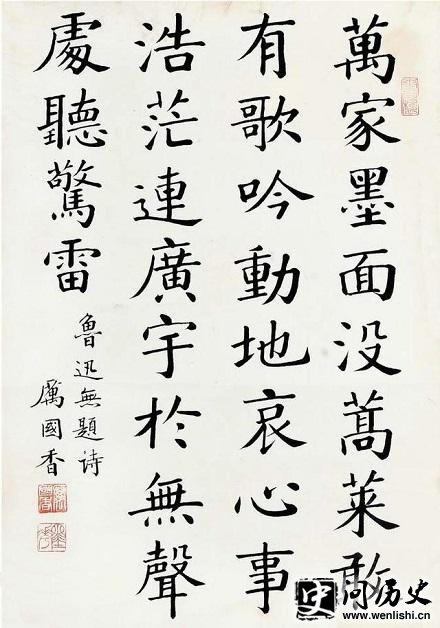 萬家墨面没蒿萊敢
有歌吟動地哀心事
浩茫連廣宇於無聲
處聽驚雷
魯迅無題诗
厲國香
史
问历史
www.wenlishi.cn